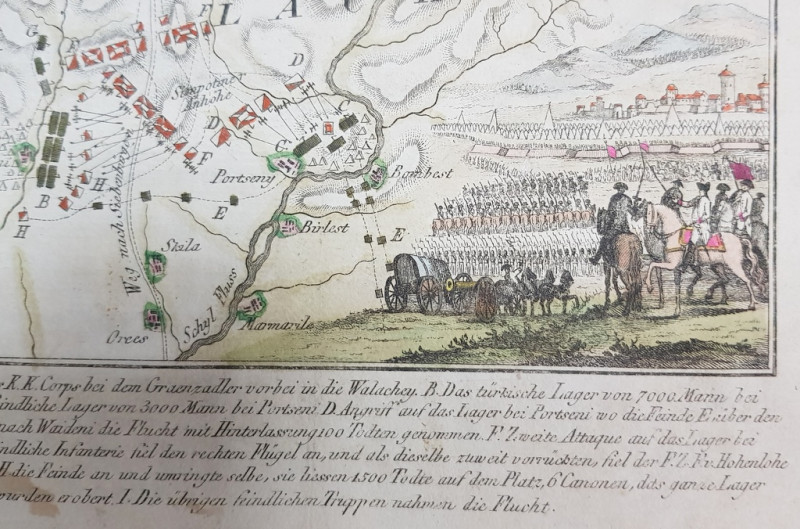 L A
G
F
D
D
Simpotiner
Anhöhe
C
D
F
C
Portseny
Bombest
B
H
E
H
Birlest
E
Weg nach Siebenbürgen
Skila
Schyl Fluss
Marmarile
Orees
K.K. Corps bei dem Graenzadler vorbei in die Walachey. B. Das türkische Lager von 7000 Mann bei
eindliche Lager von 3000 Mann bei Portseni D. Angriff auf das Lager bei Portseni wo die Feinde E über den
nach Waideni die Flucht mit Hinterlassung 100 Todten genommen. F. Zweite Attaque auf das Lager bei
indliche Infanterie fiel den rechten Flügel an, und als dieselbe zuweit vorrückten, fiel der F.Z. F.v. Hohenlohe
H. die Feinde an und umringte selbe, sie liessen 1500 Todte auf dem Platz, 6 Canonen, das ganze Lager
wurden erobert. I. Die übrigen feindlichen Truppen nahmen die Flucht.